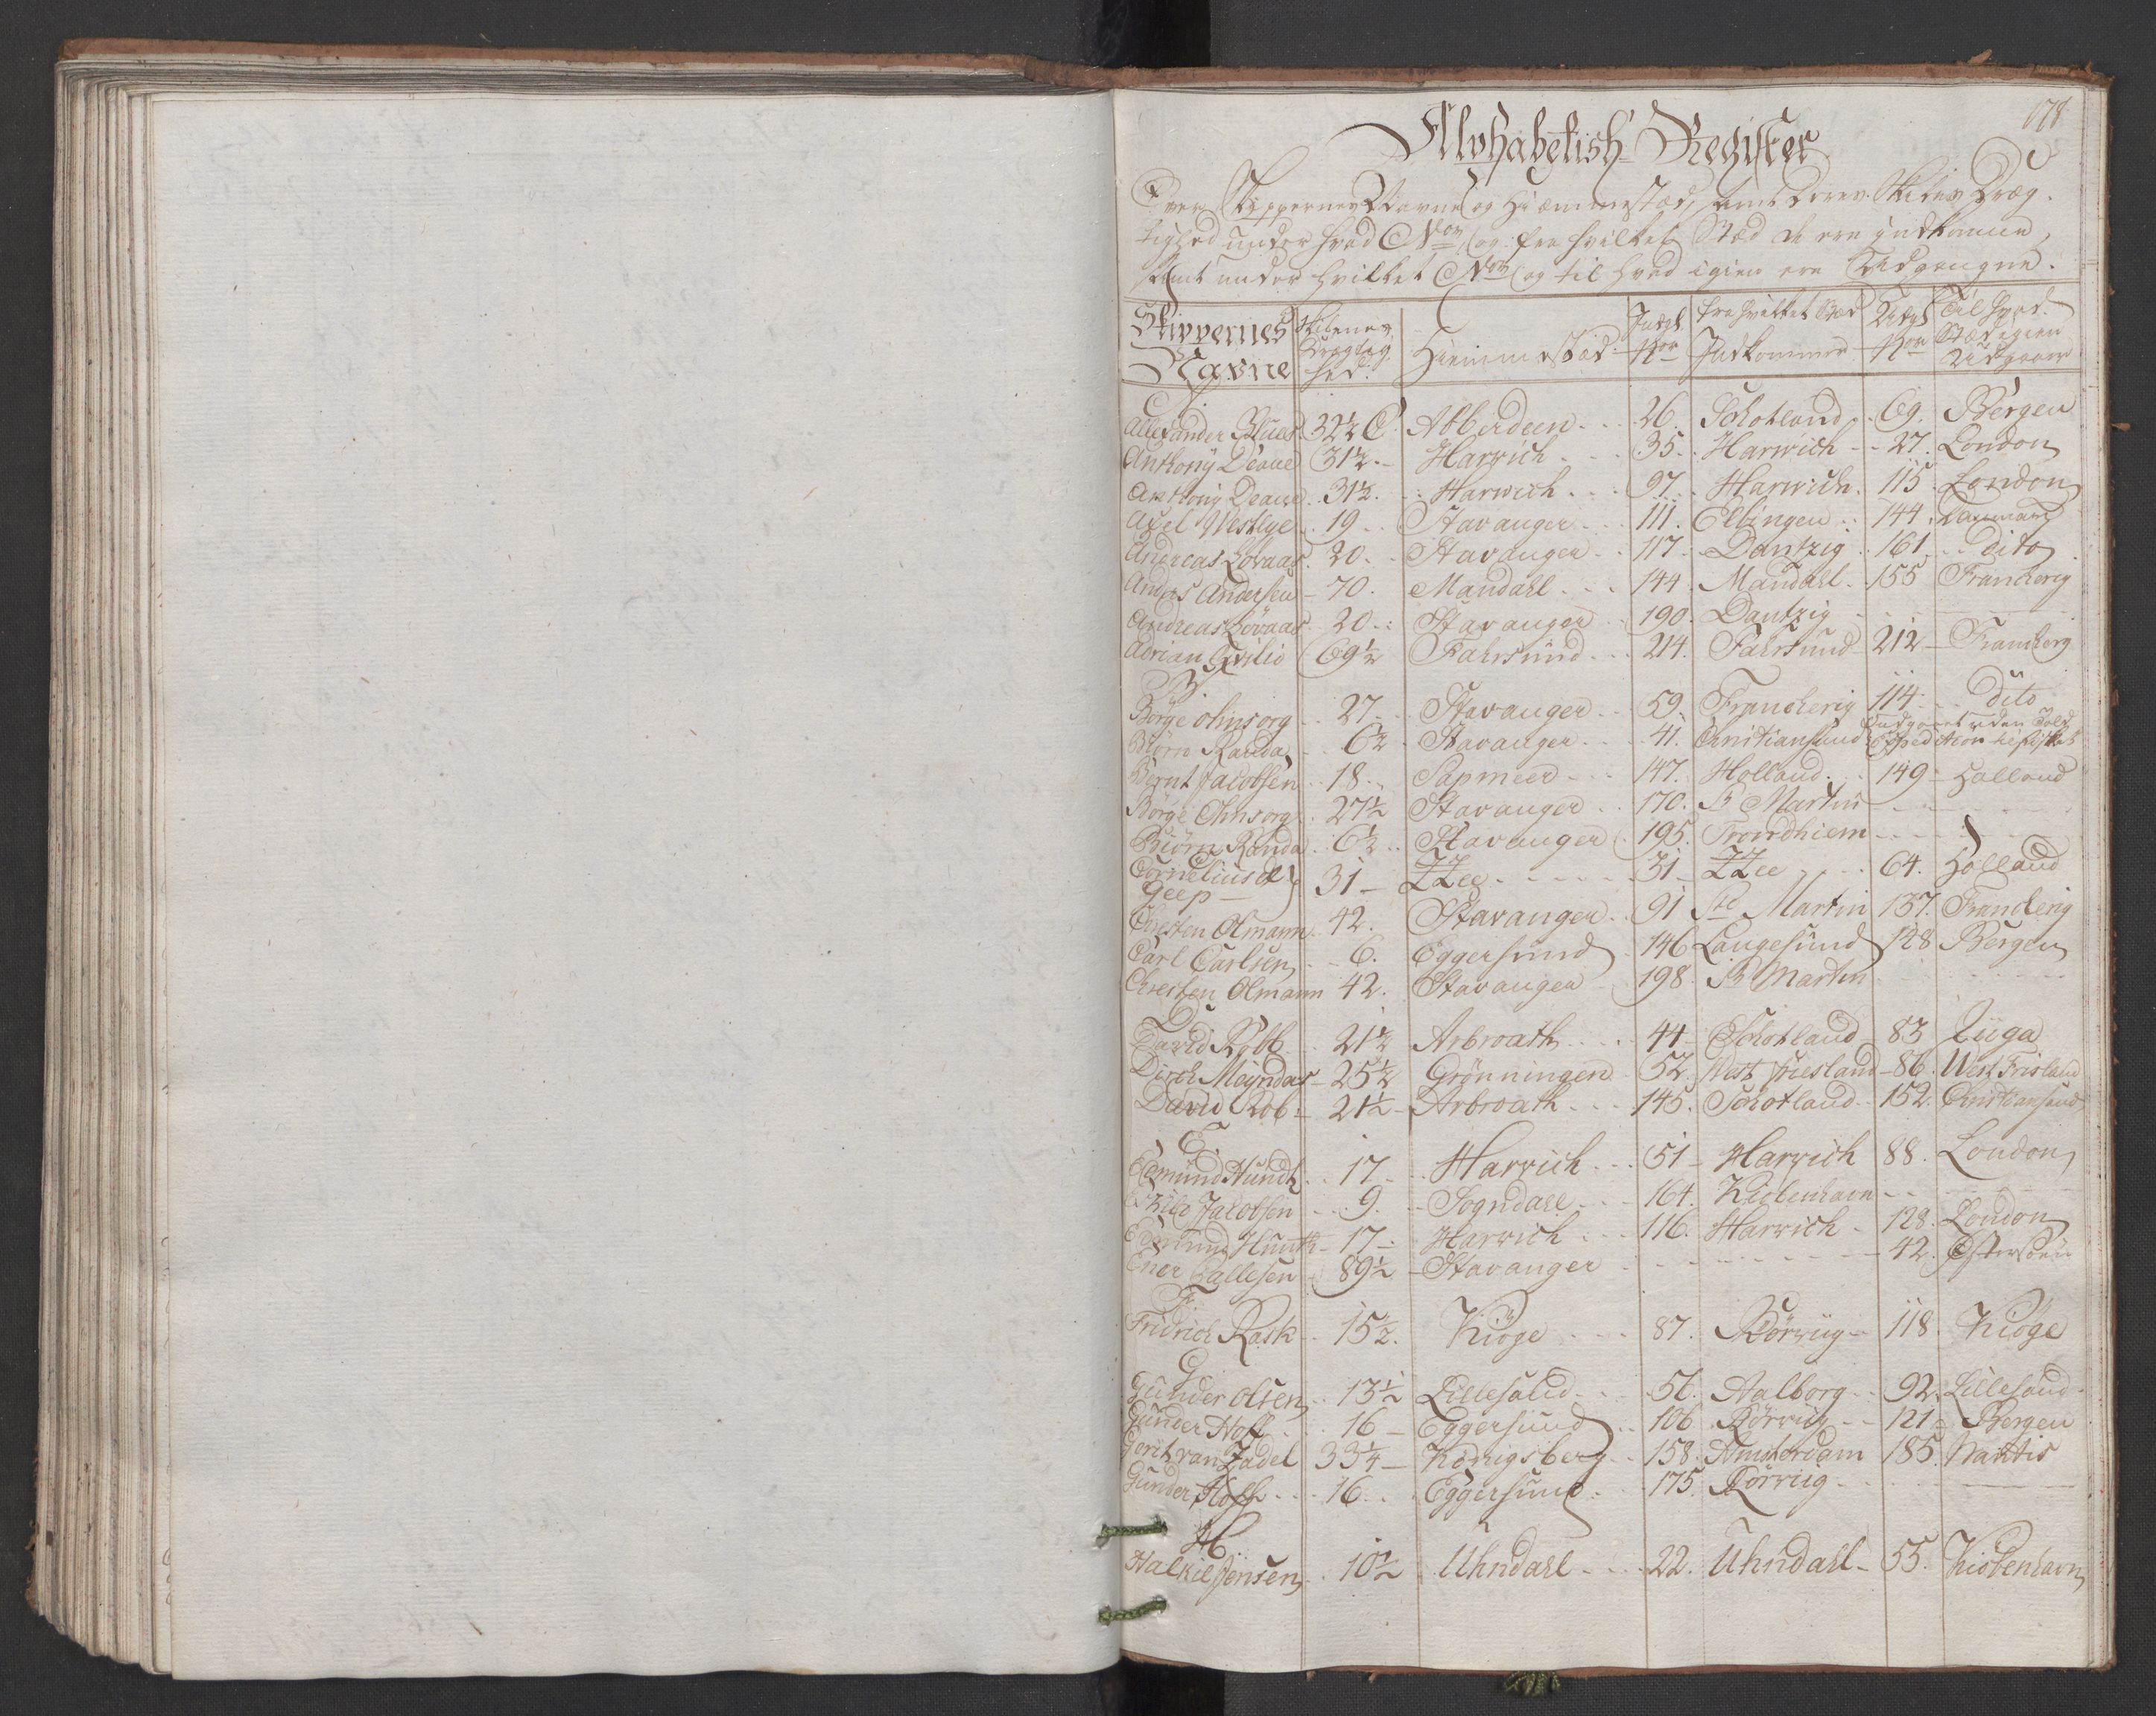 178
Alphabetish Register
Over Skippernes Navne og Hiemmestæd, samt deres Skibes Dræg-
tighed under hvad Nor og fra hvilket Stæd de ere indkomne,
samt under hvilket Nor og til hvad igien ere Udgangne.
Skippernes Navne | Skibenes Drægtighed | Hiemmestæd | Indg. Nor | Fra hvilket Stæd Indkommer | Udg. Nor | Til hvad Stæd igien Udgaaer
A.
Allexander 32½ C Abberdeen 26. Schotland 69. Bergen
Anthony Deane 31½ Harwich 35 Harwich 27. London
Anthony Deane 31½ Harwich 97 Harwich 115 London
Axel Westlye 19 Stavanger 111. Elbingen 144. Danmark
Andreas Lovaas 20 Stavanger 117. Dantzig 161 dito
Anders Andersen 70. Mandahl 144. Mandahl 155 Franckerig
Andreas Lövaas 20 Stavanger 190. Dantzig
Adrian 69½ Fahrsund 214. Fahrsund 212 Franckerig
B.
Börge Ohnsorg 27 Stavanger 59. Franckerig 114 dito
Biörn Randa 6½ Stavanger 41. Christiansund Undgaaet uden Told Expedition til fiskes
Bernt Jacobsen 18 Sapmeer 147. Holland 149 Holland
Börge Ohnsorg 27½ Stavanger 170. St Martin
Biörn Randa 6½ Stavanger 195. Trondhiem
Cornelius de
Geep 31 ZZee 31 ZZee 64. Holland
Christen Olmann 42. Stavanger 91 St Martin 137. Franckerig
Carl Carlsen 6. Eggersund 146 Langesund 148 Bergen
Christen Olmann 42. Stavanger 198 St Martin
D
David Robb 21½ Arbroath 44 Schotland 83 Riiga
Dirck Meyndas 25½ Grönningen 52. West friesland 86. West Frisland
David Rob 21½ Arbroath 145. Schotland 152. Christiansund
E.
Edmund Hundt 17 Harwich 51 Harwich 88. London
Jacobsen 9. Sogndahl 164. Kiöbenhavn
Edmund Hunth 17 Harwich 116. Harwich 128. London
Ener Tallesen 89½ Stavanger 42. Östersöen
F.
Fridrich Rask 15½. Kiöge 87. Rörviig 118. Kiöge
G
Gunder Olsen 13½ Lillesand 56. Aalborg 92. Lillesand
Gunder Hoff 16 Eggersund 106 Rörviig 121 Bergen
Gerit van Zadel 33¼ Königsberg 158. Amsterdam 185. Nantis
Gunder Hoff 16 Eggersund 175 Rörviig
H.
Halkil Jensen 10½ Uhndahl 22. Uhndahl 55. Kiöbenhavn